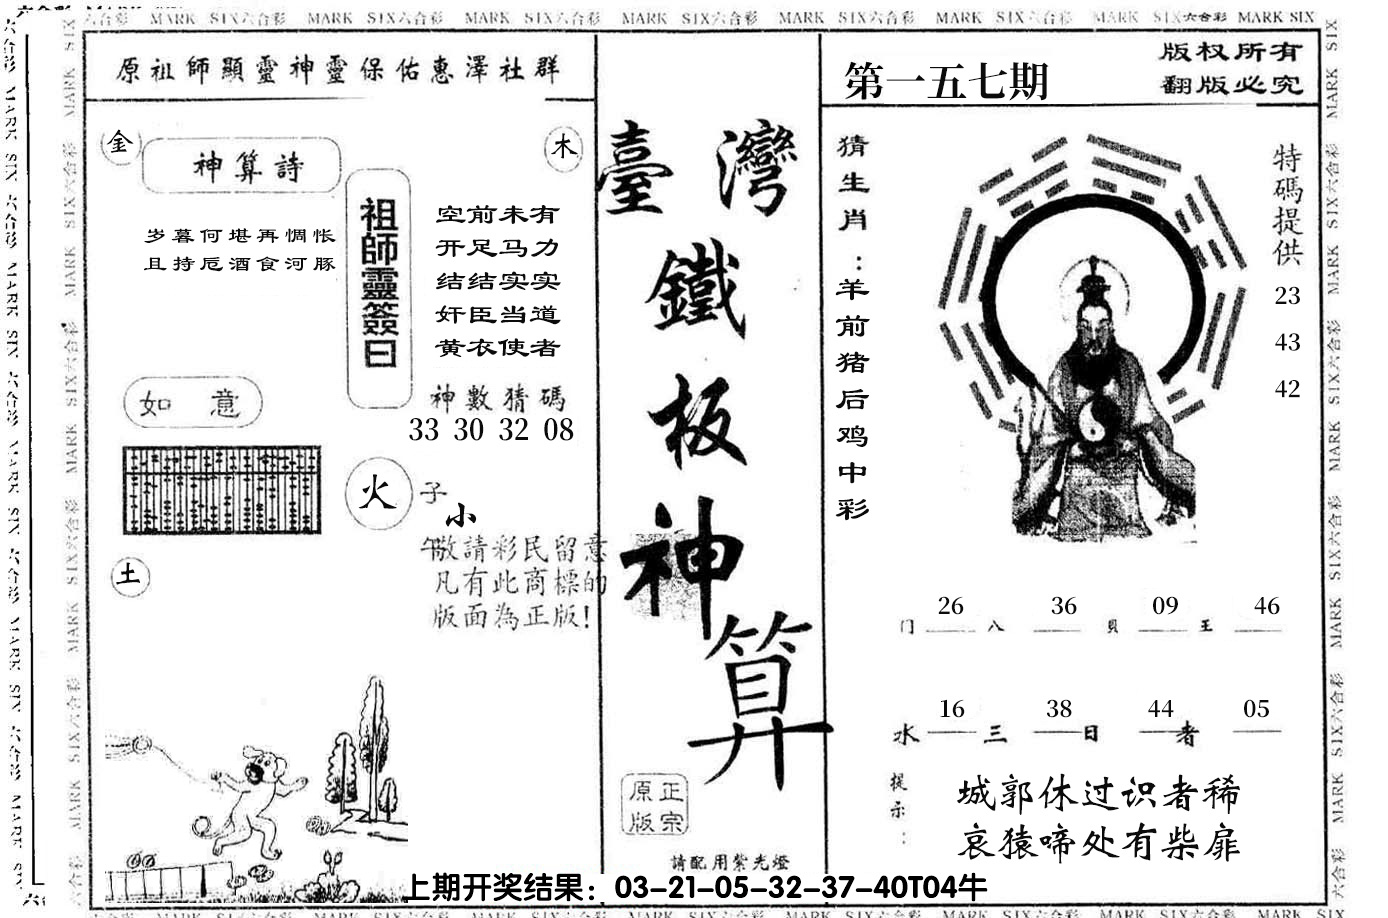 MARK SIX六合彩 MARK SIX六合彩 MARK SIX六合彩 MARK SIX六合彩 MARK SIX六合彩 MARK SIX六合彩 MARK SIX六合彩 MARK SIX
原祖師顯靈神靈保佑惠澤社群
金
神算詩
木
岁暮何堪再惆怅
且持卮酒食河豚
祖師靈簽曰
空前未有
开足马力
结结实实
奸臣当道
黄衣使者
神數猜碼
33 30 32 08
如意
火
子
小
午
敬請彩民留意
凡有此商標的
版面為正版!
土
臺灣
鐵
板
神
算
正宗
原版
請配用紫光燈
第一五七期
版权所有
翻版必究
猜生肖:羊前猪后鸡中彩
特碼提供
23
43
42
26 36 09 46
门 八 貝 王
16 38 44 05
水 三 日 者
提示:
城郭休过识者稀
哀猿啼处有柴扉
上期开奖结果：03-21-05-32-37-40T04牛